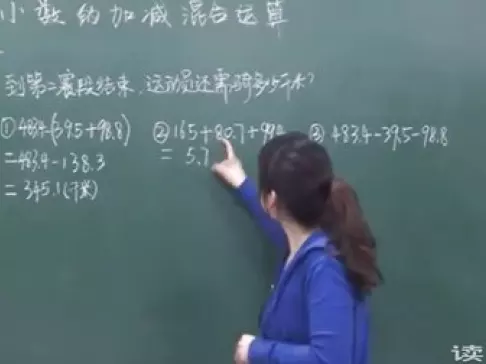 小数的加减混合运算
到第二赛段结束,运动员还需骑多少千米?
①483.4-(39.5+98.8) ②165+80.7+99.4 ③483.4-39.5-98.8
=483.4-138.3 = 5.7
=345.1(千米)
读